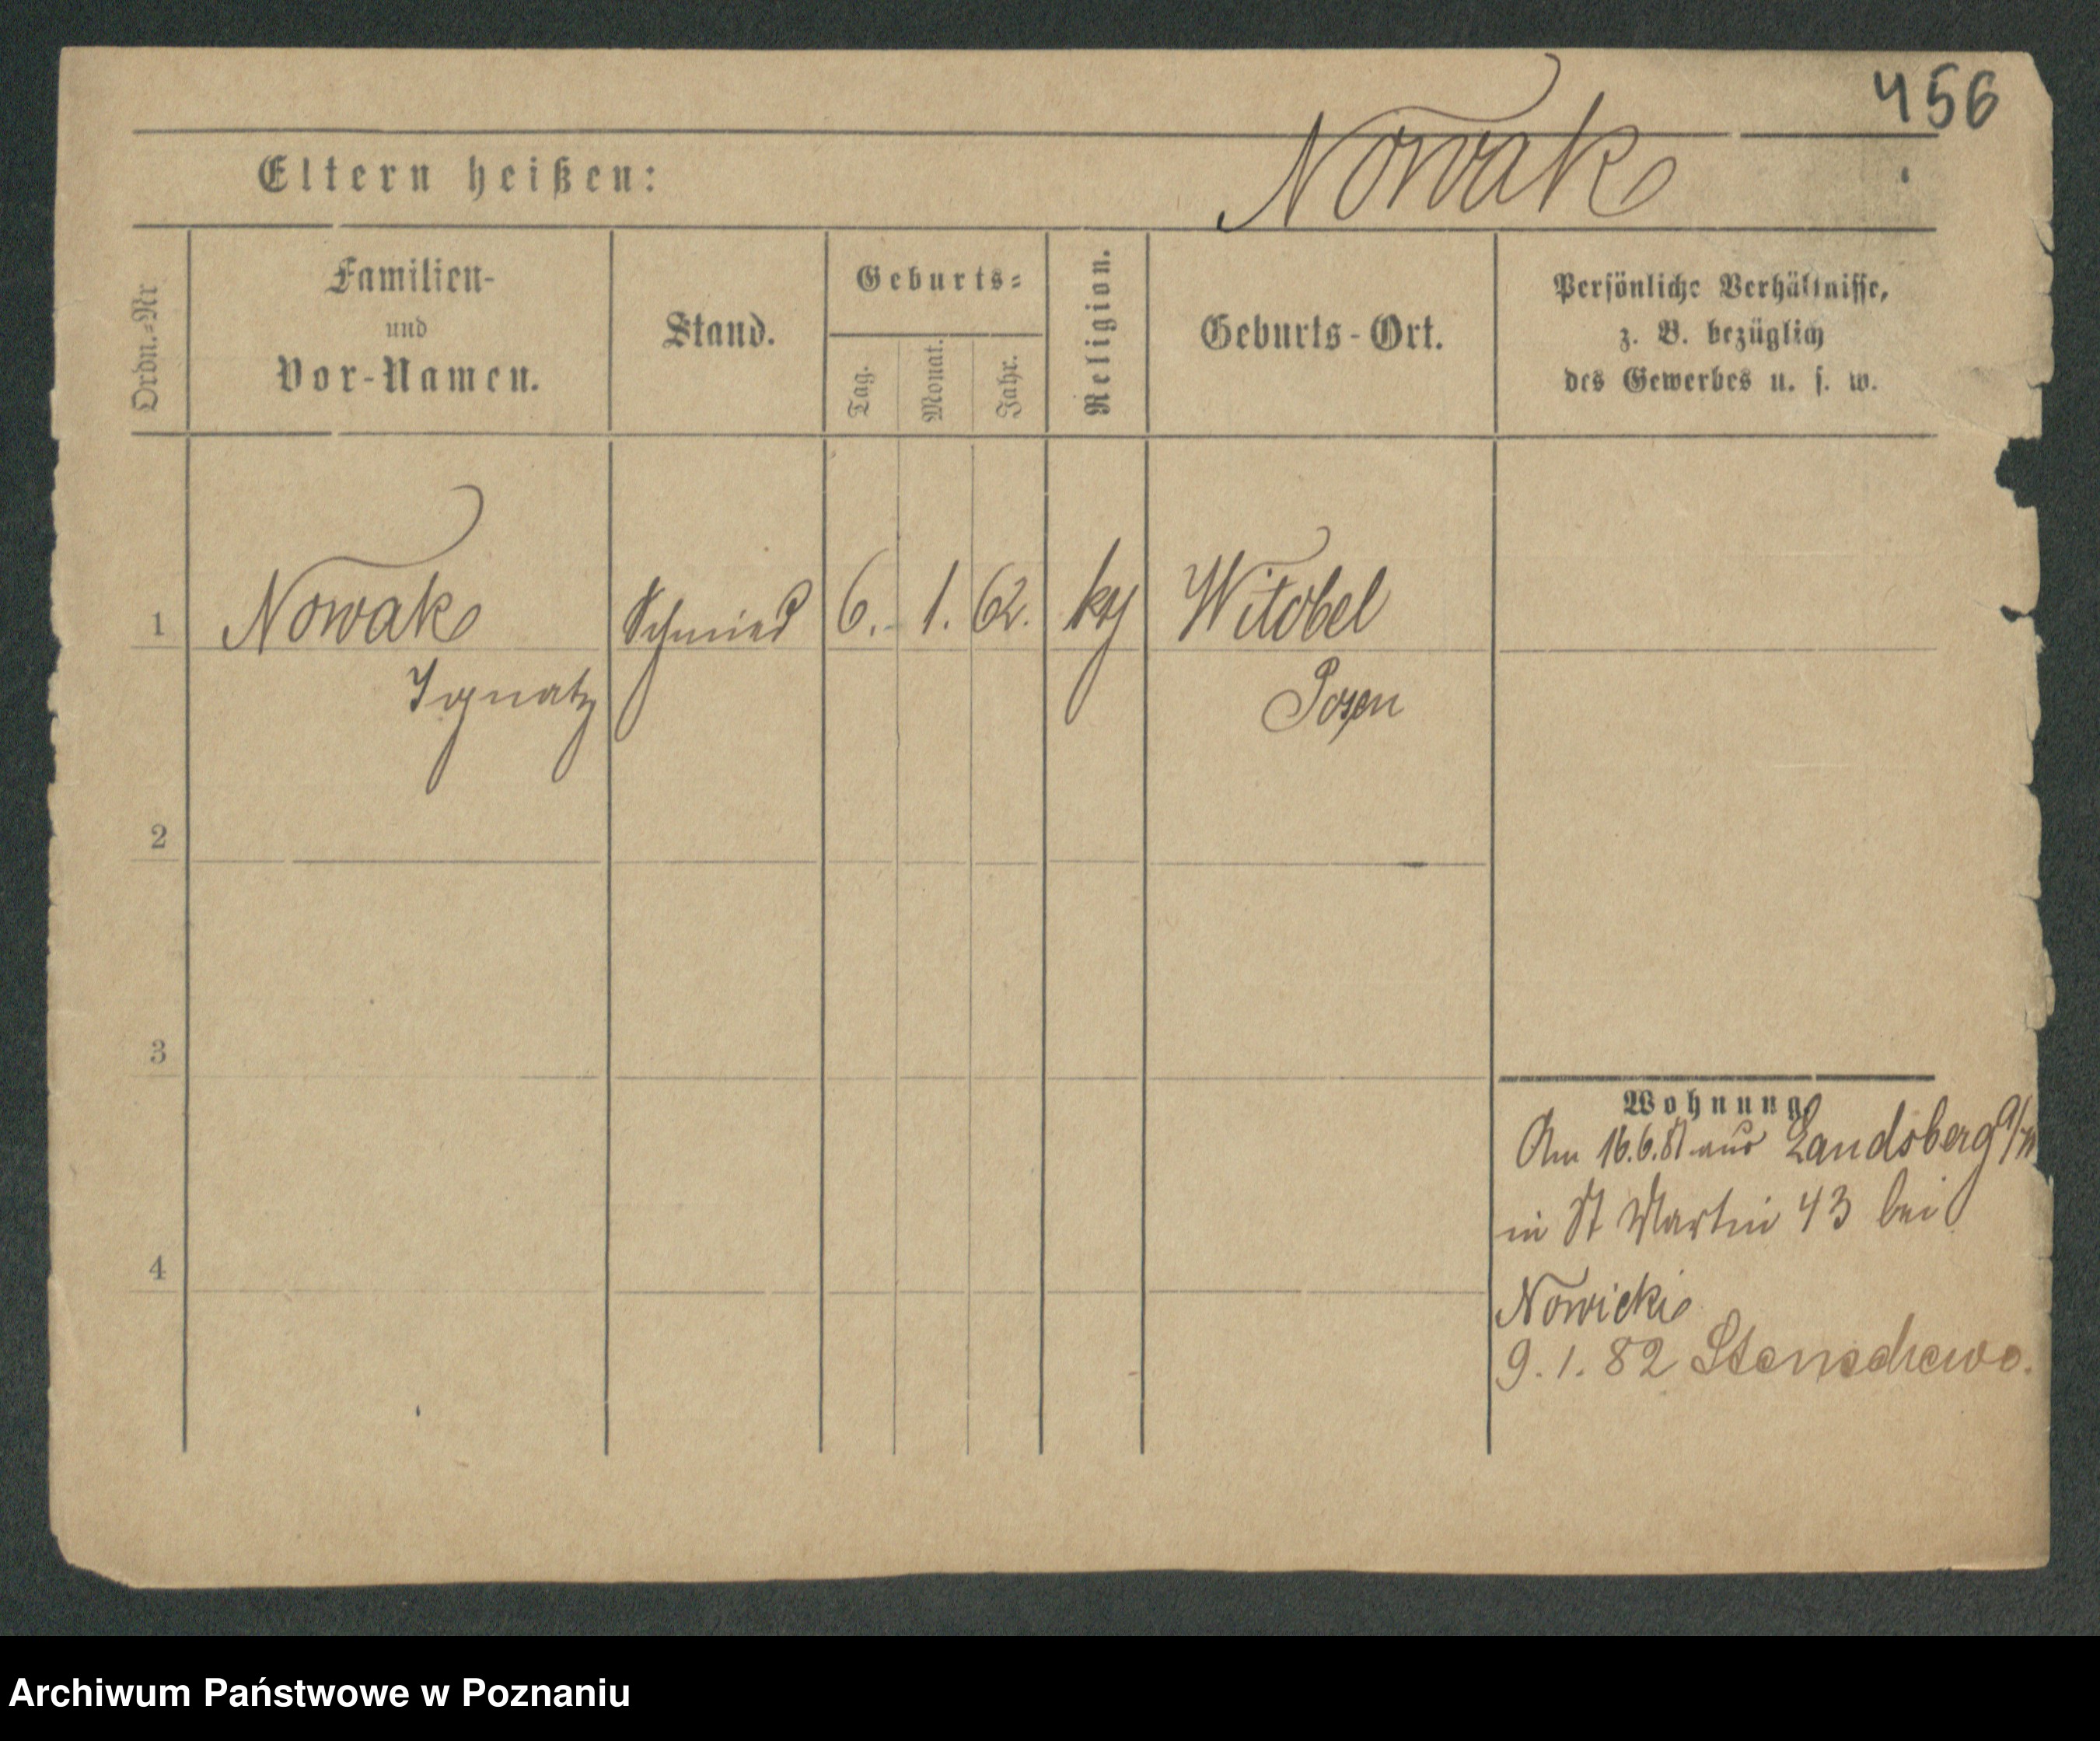 456
Nowak
Eltern heißen:
Ordn.=Nr
Familien-
und
Vor-Namen.
Stand.
Geburts=
Tag.
Monat.
Jahr.
Religion.
Geburts-Ort.
Persönliche Verhältnisse,
z. B. bezüglich
des Gewerbes u. s. w.
1
Nowak Schmied 6. 1. 62. Witobel
Ignatz Posen
2
3
Wohnung.
Am 16.6.81 aus Landsberg a/W
in St Martin 43 bei
4
Nowicki
9. 1. 82
Archiwum Państwowe w Poznaniu